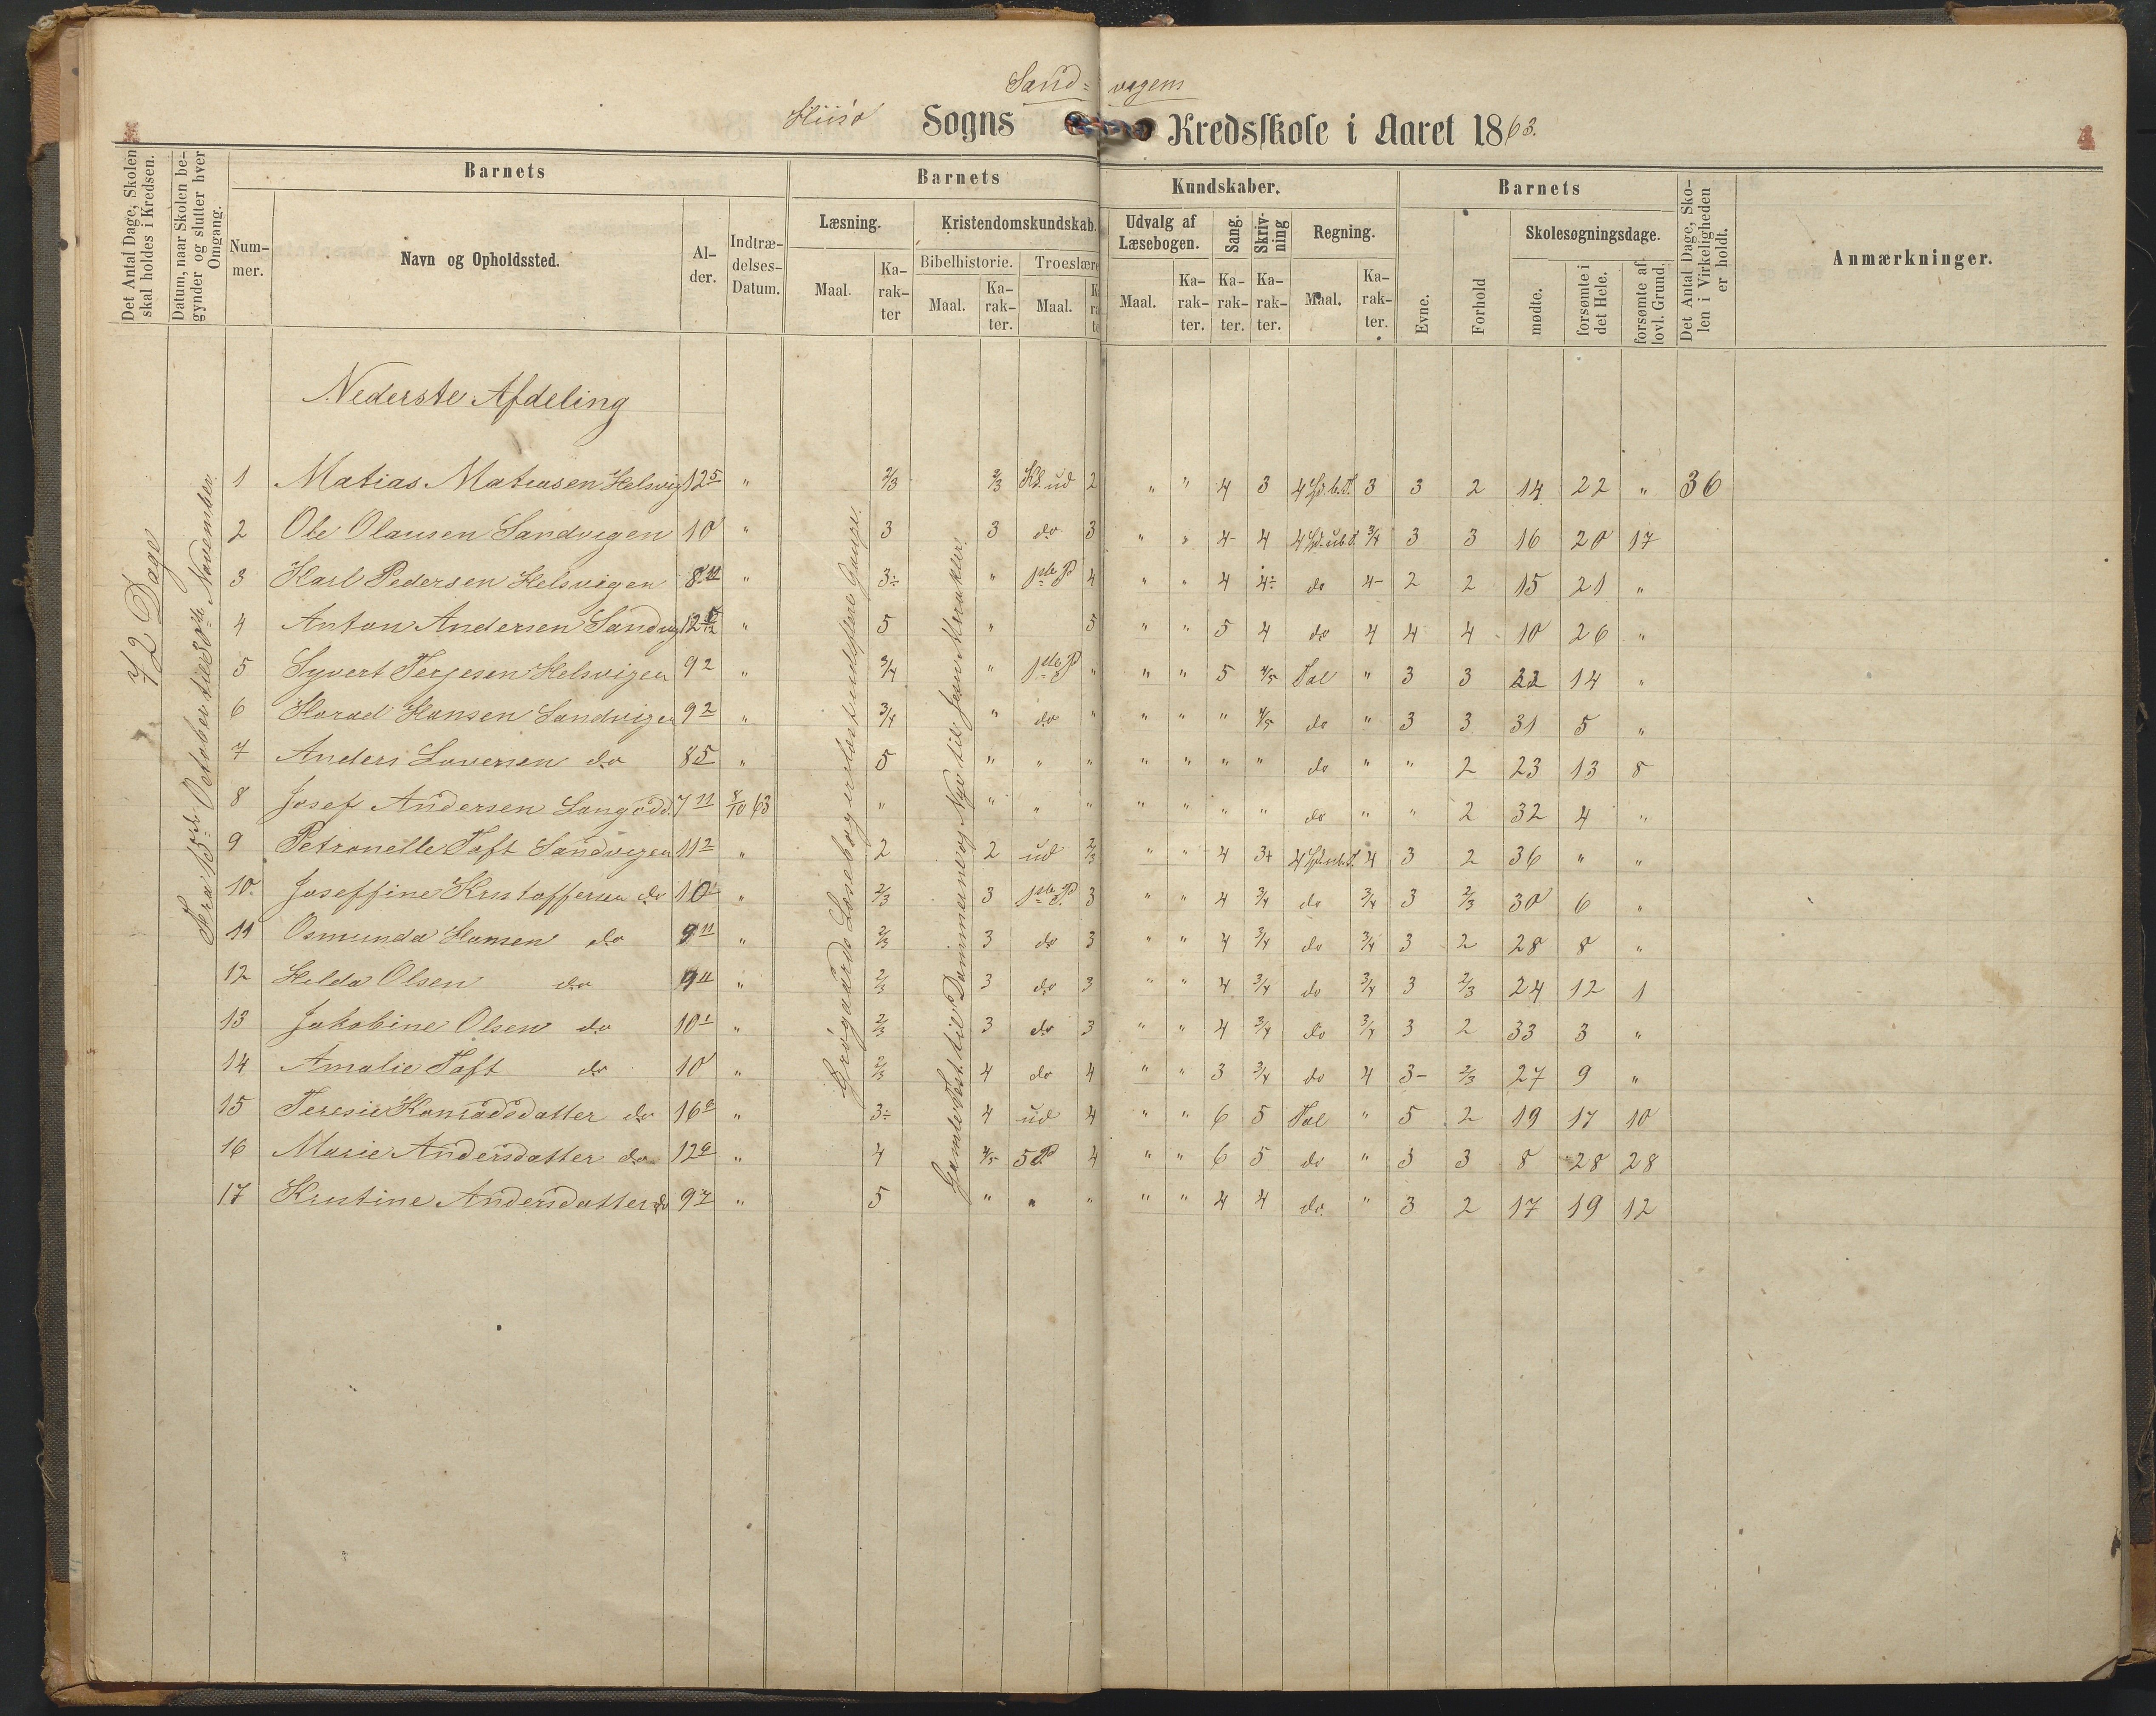 Sand= vigens
Hisø Sogns Kredsskole i Aaret 1863.
Det Antal Dage, Skolen skal holdes i Kredsen.
Datum, naar Skolen begynder og slutter hver Omgang.
Barnets
Nummer.
Navn og Opholdssted.
Alder.
Indtrædelses-Datum.
Barnets Kundskaber.
Læsning.
Maal. Karakter
Kristendomskundskab.
Bibelhistorie. Troeslære
Maal. Karakter. Maal.
Udvalg af Læsebogen.
Maal. Karakter.
Sang. Karakter.
Skrivning Karakter.
Regning.
Maal. Karakter.
Barnets
Evne.
Forhold
Skolesøgningsdage.
mødte.
forsømte i det Hele.
forsømte af lovl. Grund.
Det Antal Dage, Skolen i Virkeligheden er holdt.
Anmærkninger.
72 Dage
Fra 15de October til 30te November
Nederste Afdeling
1 Matias Matiasen Helsvig 12 5 " 2/3 2/3 Kl. ud 2 " " 4 3 3 3 2 14 22 " 36
2 Ole Olausen Sandvigen 10 " 3 3 do 3 " " 4- 4 3/4 3 3 16 20 17
3 Karl Pedersen Helsvigen 8 11 " 3÷ " 1ste P 4 " " 4 4÷ do 4- 2 2 15 21 "
4 Anton Andersen Sandvig 12 " 5 " 5 " " 5 4 do 4 4 4 10 26 "
5 Syvert Terjesen Helsvigen 9 2 " 3/4 " 1ste P " " " 5 4/5 Tal " 3 3 22 14 "
6 Harald Hansen Sandvigen 9 2 " 3/4 " do " " " " 4/5 do " 3 3 31 5 "
7 Anders Laversen do 8 5 " 5 " " " " " " " do " " 2 23 13 8
8 Josef Andersen Langodd. 7 11 8/10 63 " " " " " " " " do " " 2 32 4 "
9 Petronelle Toft Sandvigen 11 2 " 2 2 ud 2/3 " " 4 3+ 4 3 2 36 " "
10 Joseffine Kristoffersen do 10 1 " 2/3 3 1ste P. 3 " " 4 3/4 do 3/4 3 2/3 30 6 "
11 Osmunda Hansen do 9 11 " 2/3 3 do 3 " " 4 3/4 do 3/4 3 2 28 8 "
12 Helda Olsen do 9 11 " 2/3 3 do 3 " " 4 3/4 do 3/4 3 2/3 24 12 1
13 Jakobine Olsen do 10 1 " 2/3 3 do 3 " " 4 3/4 do 3/4 3 2 33 3 "
14 Amalie Toft do 10 " 2/3 4 do 4 " " 3 3/4 do 4 3- 2/3 27 9 "
15 Teresie Konradsdatter do 16 " 3÷ 4 ud 4 " " 6 5 Tal " 5 2 19 17 10
16 Marie Andersdatter do 12 " 4 4/5 5 P 4 " " 6 5 do " 5 3 8 28 28
17 Kristine Andersdatter do 9 7 " 5 " " " " " 4 4 do. " 3 2 17 19 12
Grøgaards Læsebog
Gamle Test. til Dommerne og Nye til